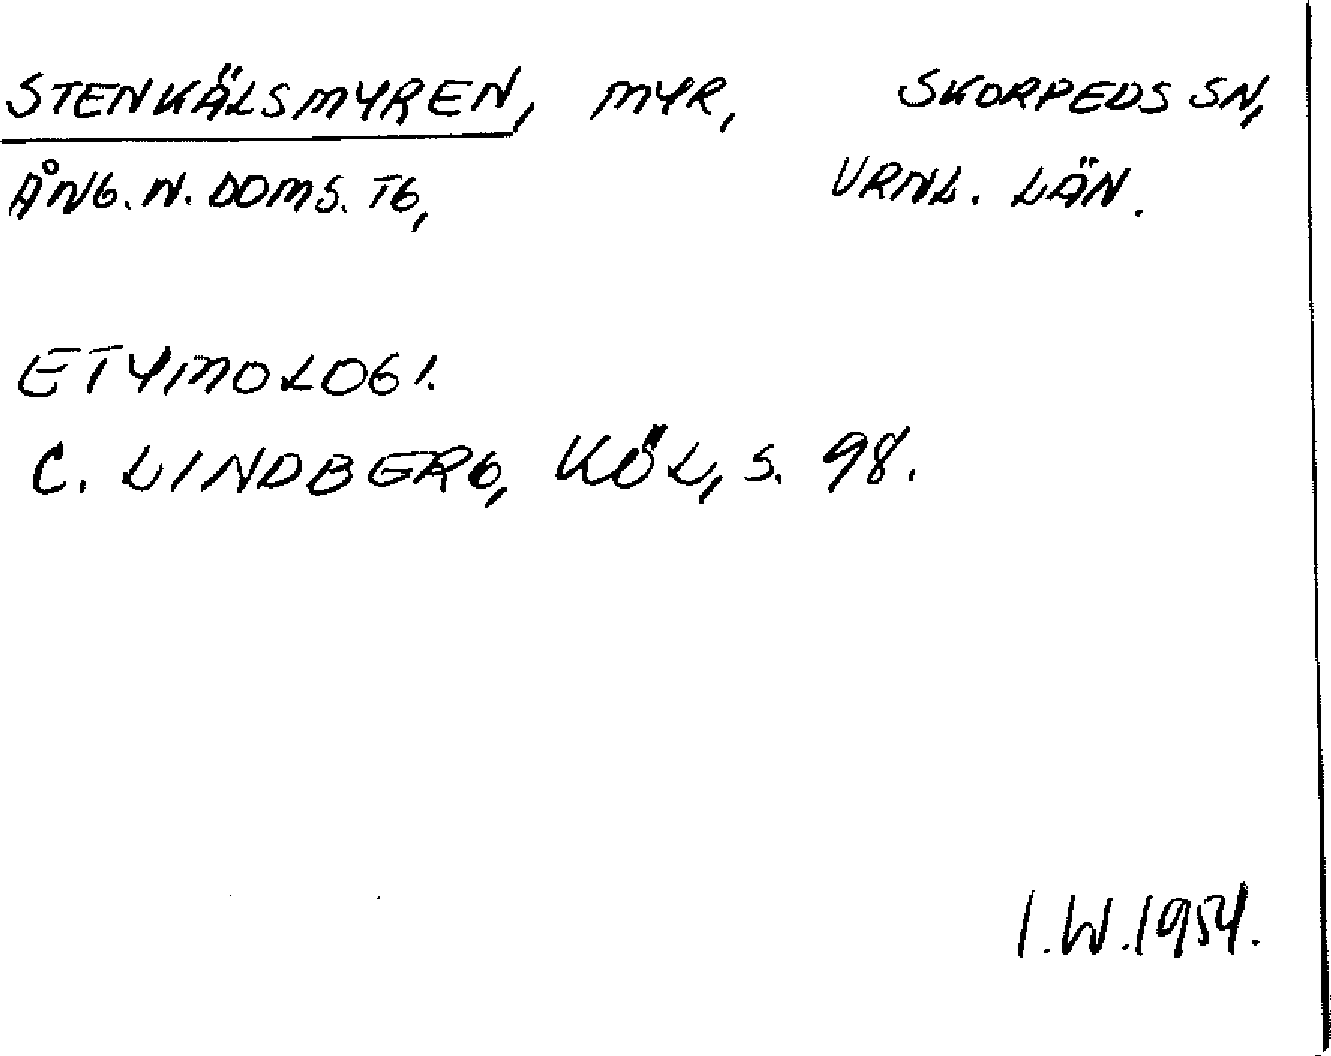 STENKÄLSMYREN, MYR, SKORPEDS SN,
ÅNG. N. DOMS. TG, VRNL. LÄN.
ETYMOLOGI.
C. LINDBERG, KÖL, S. 98.
I.W.1954.